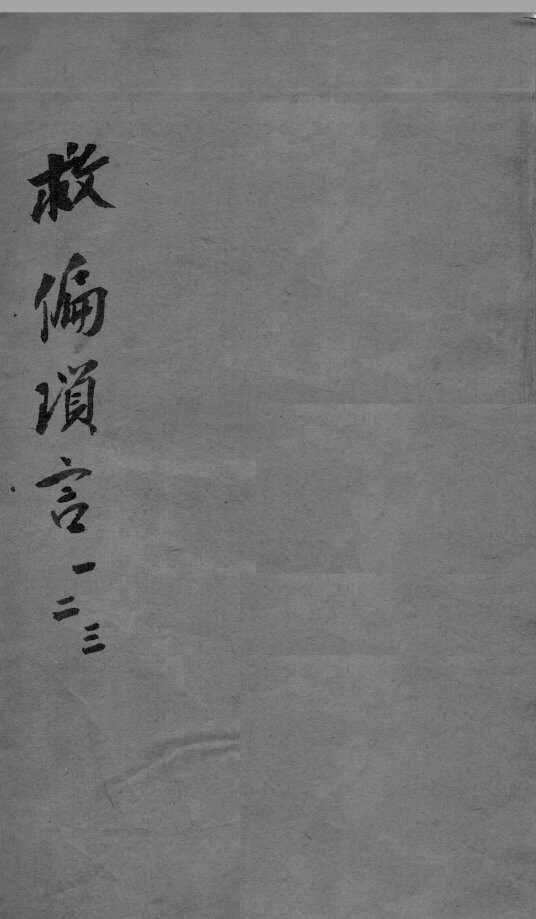 救偏瑣言一二三